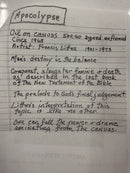 Apocolypse
Oil on canvas 58x50 signed unframed
Circa 1968
Artist: Francis Litna 1901-1973
Man's destiny in the balance
Conquest, slaughter famine & death
as described in the last book
of the New Testament of the Bible.
The prelude to God's final judgement
Litna's interpretation of this
topic is like no other.
One can feel the power & drama
emanating from the canvas.